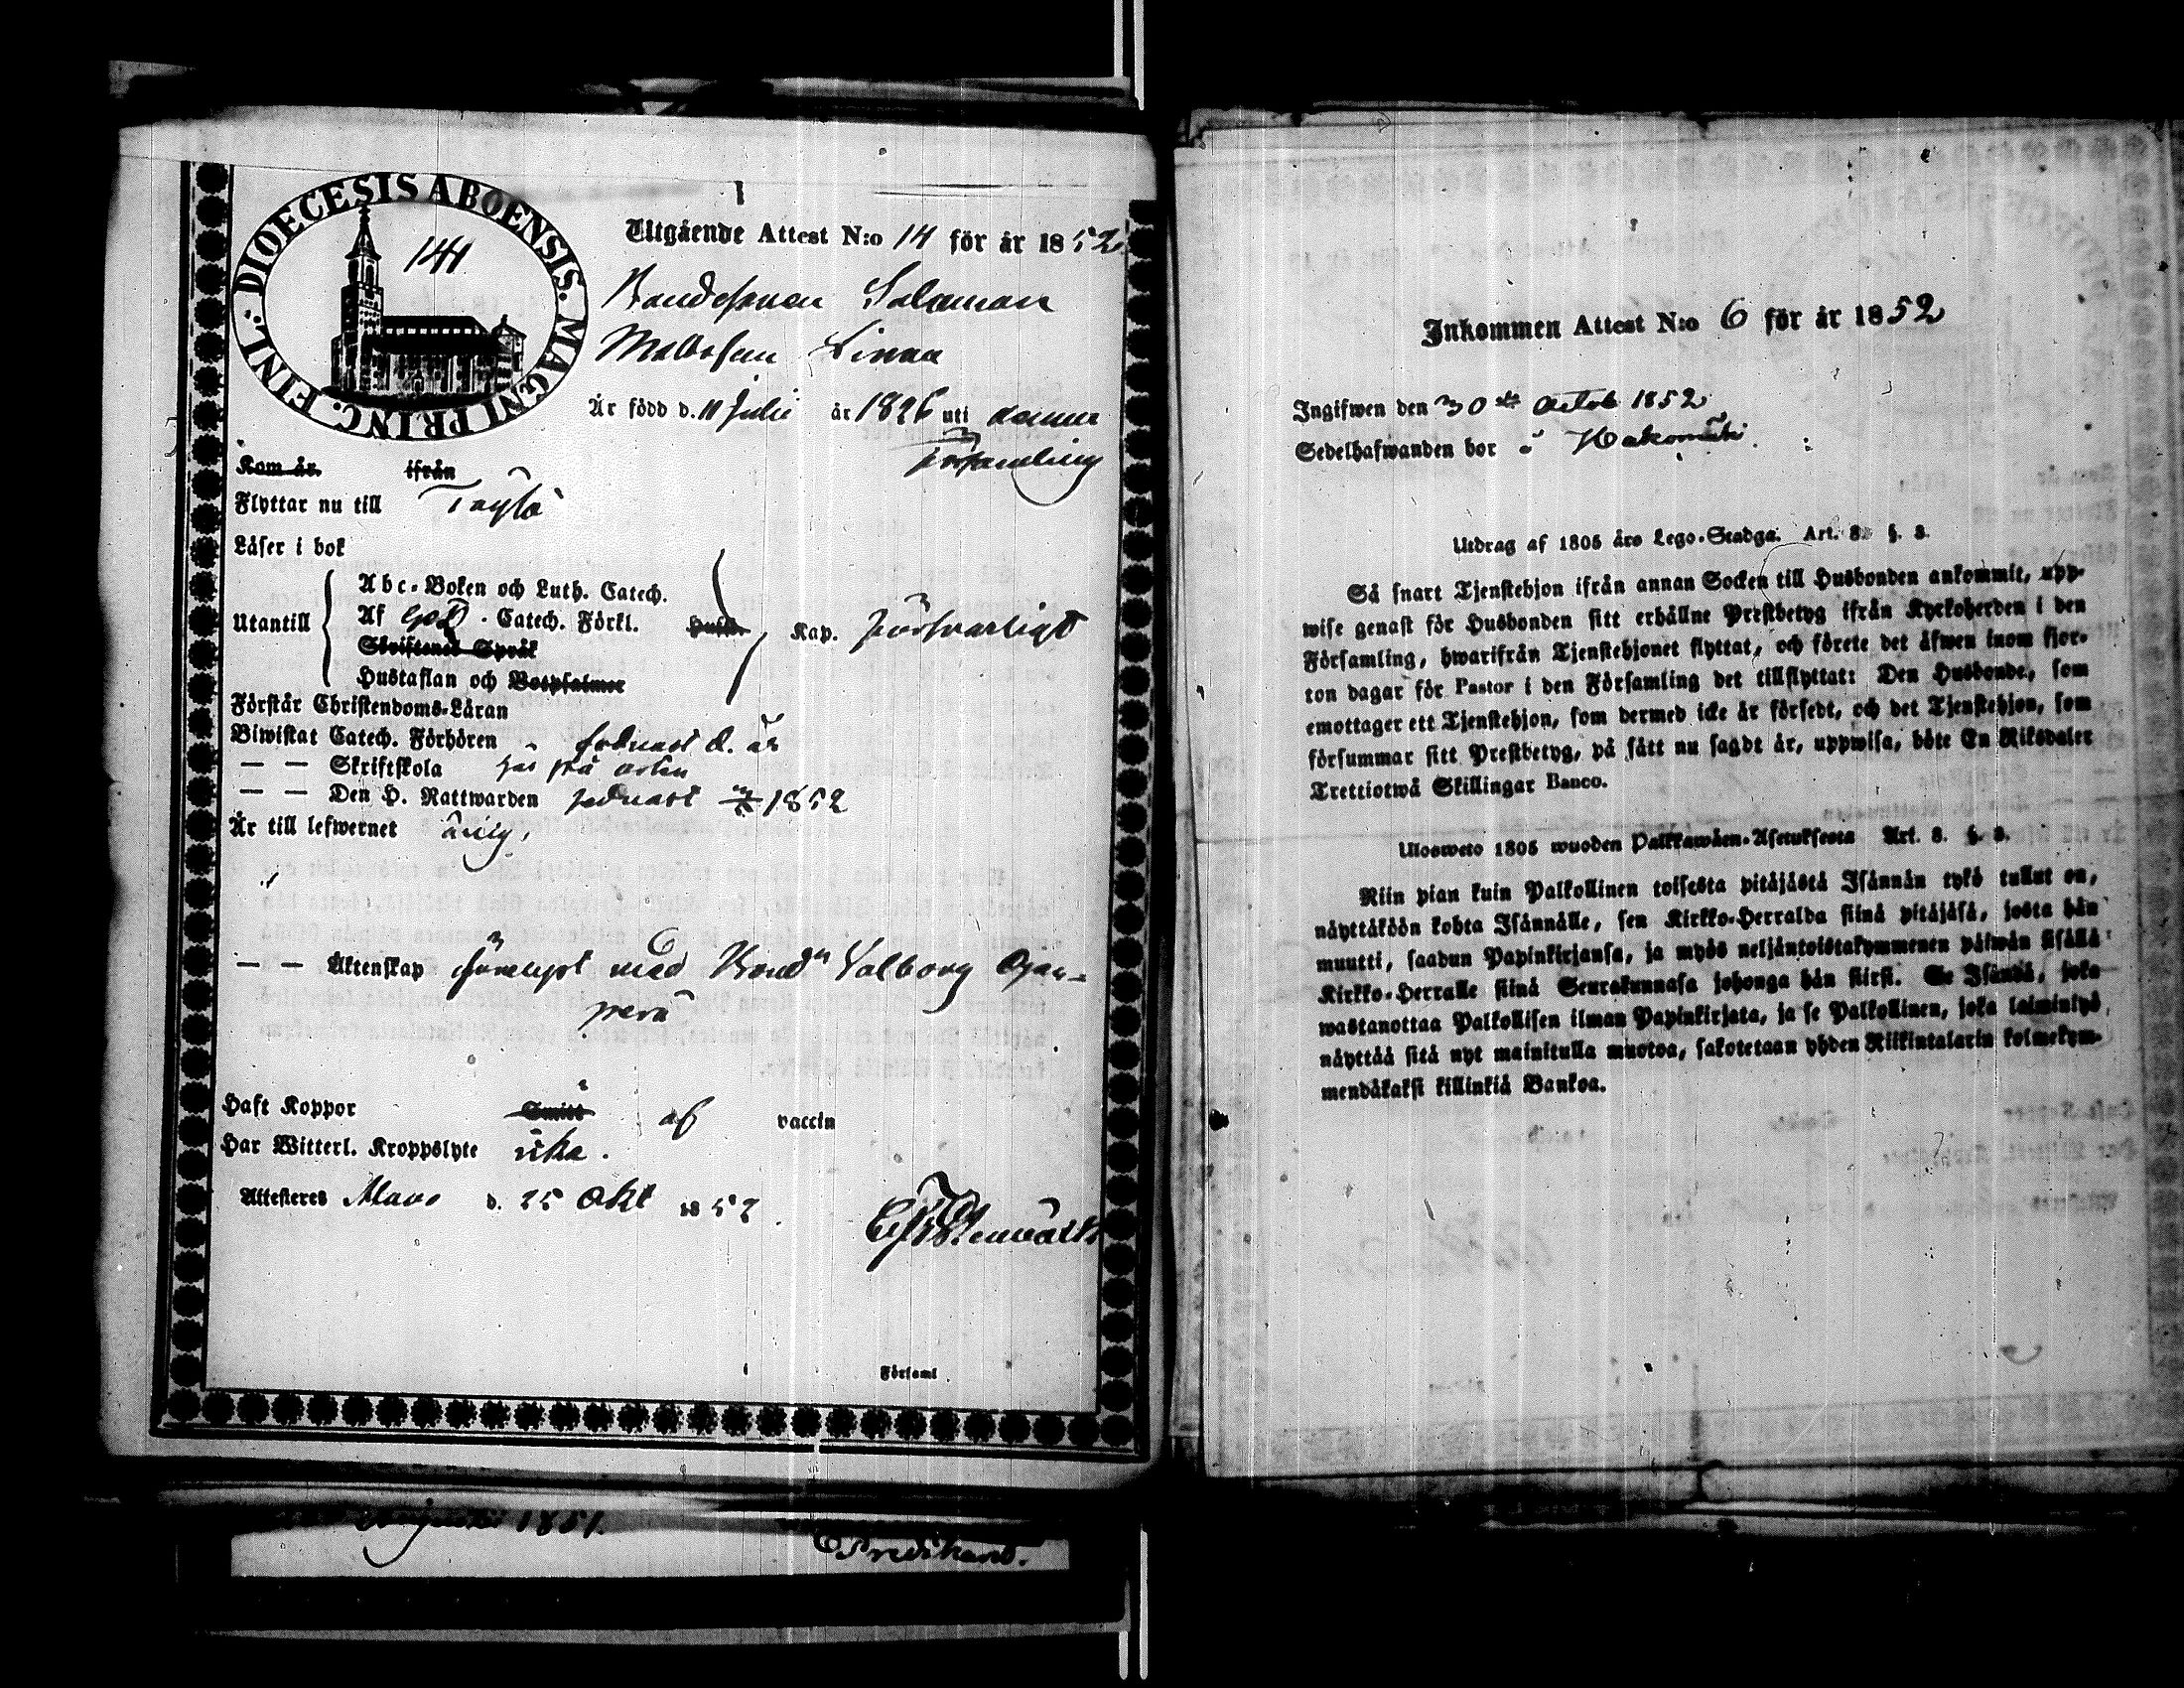 DIOECESIS ABOENSIS. MAGNI PRINC. FINL.:
141.
Utgående Attest N:o 14 för år 1852.
Bondesonen Salomon
Mattsson Linna
Är född d. 11 Julii år 1826 uti denna
församling
Kom år ifrån
Flyttar nu till Töysö
Läser i bok
Utantill
Abc-Boken och Luth. Catech.
Af Catech. Förkl.
Skriftenes Språk
Hustaflan och Botpsalmer
Kap. försvarligt
Förstår Christendoms-Läran
Biwistat Catech. Förhören sednast d. år
— — Skriftskola här på orten
— — Den H. Nattwarden sednast 1852
Är till lefwernet ärlig,
— — Äktenskap förelyst med Bond Valborg Ojan-
perä
Haft Koppor Smitt af vaccin
Har Witterl. Kroppslyte icke.
Attesteras Alavo d. 25 Okt 1852.
Församl.
1851.
Inkommen Attest N:o 6 för år 1852
Ingifwen den 30de Octob 1852
Sedelhafwanden bor å Hakomäki
Utdrag af 1805 års Lego-Stadga. Art. 8. §. 3.
Så snart Tjenstehjon ifrån annan Socken till Husbonden ankommit, upp-
wise genast för Husbonden sitt erhållne Prestbetyg ifrån Kyrkoherden i den
Församling, hwarifrån Tjenstehjonet flyttat, och förete det äfwen inom fjor-
ton dagar för Pastor i den Församling det tillflyttat: Den Husbonde, som
emottager ett Tjenstehjon, som dermed icke är försedt, och det Tjenstehjon, som
försummar sitt Prestbetyg, på sätt nu sagdt är, uppwisa, böte En Riksdaler
Trettiotwå Skillingar Banco.
Ulosweto 1805 wuoden Palkkawäen-Asetuksesta Art. 8. §. 3.
Niin pian kuin Palkollinen toisesta pitäjästä Isännän tykö tullut on,
näyttäköön kohta Isännälle, sen Kirkko-Herralda siinä pitäjäsä, josta hän
muutti, saadun Papinkirjansa, ja myös neljäntoistakymmenen päiwän sisällä
Kirkko-Herralle siinä Seurakunnasa johonga hän siirsi. Se Isändä, joka
wastanottaa Palkollisen ilman Papinkirjata, ja se Palkollinen, joka laiminlyö
näyttää sitä nyt mainitulla muotoa, sakotetaan yhden Riikintalarin kolmekym-
mendäkaksi killinkiä Bankoa.